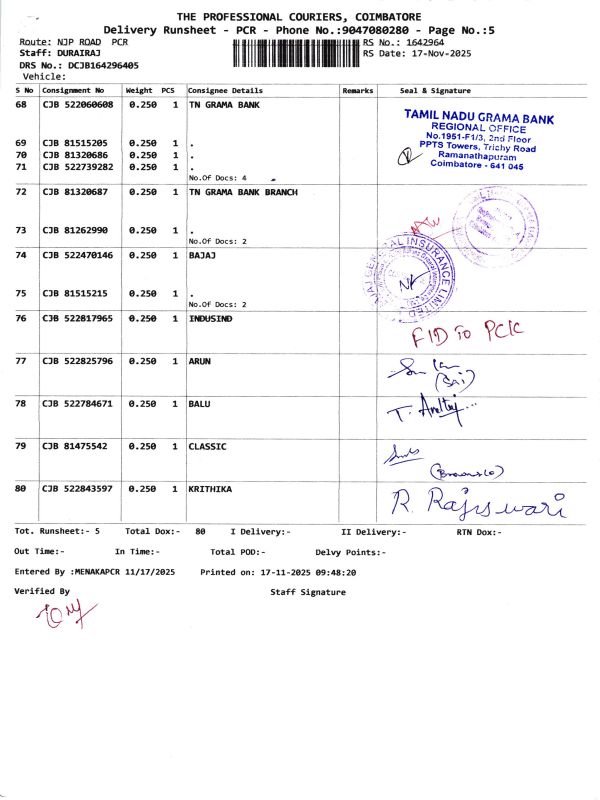 THE PROFESSIONAL COURIERS, COIMBATORE
Delivery Runsheet - PCR - Phone No.:9047080280 - Page No.:5
Route: NJP ROAD PCR
RS No.: 1642964
Staff: DURAIRAJ
RS Date: 17-Nov-2025
DRS No.: DCJB164296405
Vehicle:
S No Consignment No Weight PCS Consignee Details Remarks Seal & Signature
68 CJB 522060608 0.250 1 TN GRAMA BANK
TAMIL NADU GRAMA BANK
REGIONAL OFFICE
No.1951-F1/3, 2nd Floor
PPTS Towers, Trichy Road
Ramanathapuram
Coimbatore - 641 045
69 CJB 81515205 0.250 1 .
70 CJB 81320686 0.250 1 .
71 CJB 522739282 0.250 1 .
No.Of Docs: 4
72 CJB 81320687 0.250 1 TN GRAMA BANK BRANCH
73 CJB 81262990 0.250 1 .
No.Of Docs: 2
74 CJB 522470146 0.250 1 BAJAJ
INSURANCE LIMITED
75 CJB 81515215 0.250 1 .
No.Of Docs: 2
76 CJB 522817965 0.250 1 INDUSIND
77 CJB 522825796 0.250 1 ARUN
(Sai)
78 CJB 522784671 0.250 1 BALU
79 CJB 81475542 0.250 1 CLASSIC
80 CJB 522843597 0.250 1 KRITHIKA
R. Rajeswari
Tot. Runsheet:- 5 Total Dox:- 80 I Delivery:- II Delivery:- RTN Dox:-
Out Time:- In Time:- Total POD:- Delvy Points:-
Entered By :MENAKAPCR 11/17/2025 Printed on: 17-11-2025 09:48:20
Verified By Staff Signature